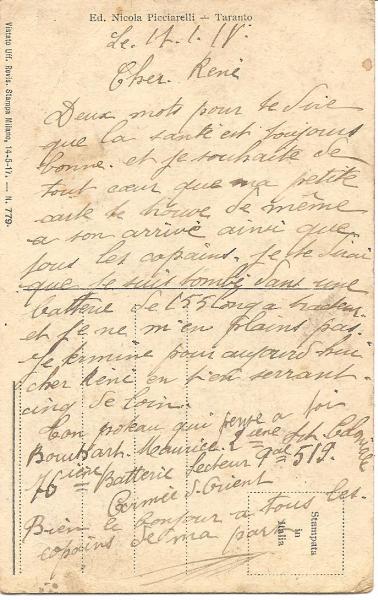 Ed. Nicola Picciarelli — Taranto
Cher René
Deux mots pour te dire
que la santé est toujours
bonne. et je souhaite de
tout cœur que ma petite
carte te trouve de même
a son arrivé ainsi que
tous les copains. Je te dirai
que je suis tombé dans une
batterie de 155 long a tracteur
et je ne m'en plains pas.
Je termine pour aujourd'hui
cher René en t'en serrant
cinq de loin.
Ton poteau qui pense a toi
Maurice 2ième Art Coloniale
Batterie Secteur 519.
Armée d'Orient
Bien le bonjour a tous les
copains de ma part
Vistato Uff. Revis. Stampa Milano, 14-5-17. — N. 779.
Stampata
in
Italia